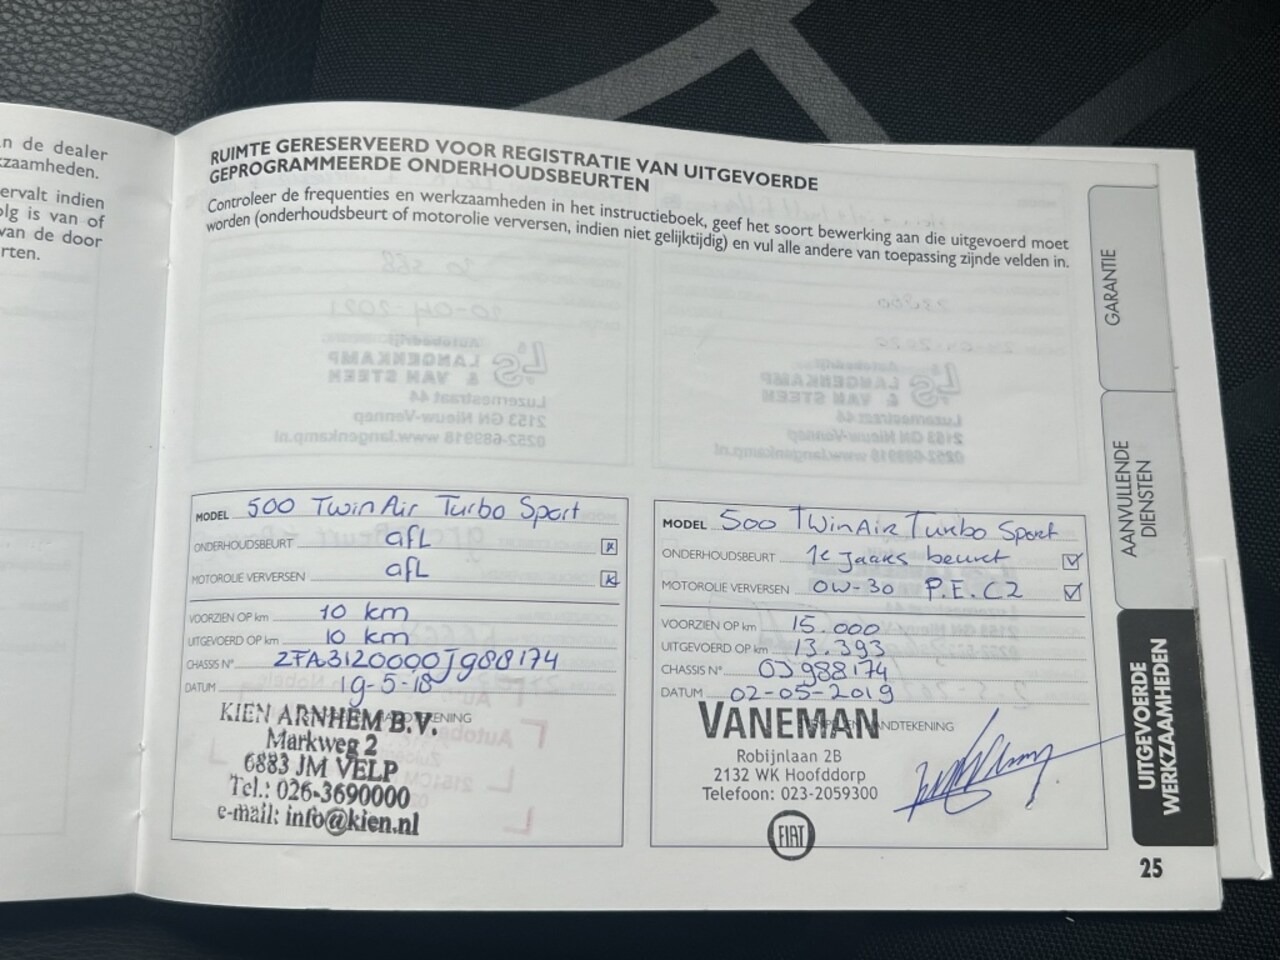 n de dealer
zaamheden.
ervalt indien
olg is van of
van de door
rten.
RUIMTE GERESERVEERD VOOR REGISTRATIE VAN UITGEVOERDE
GEPROGRAMMEERDE ONDERHOUDSBEURTEN
Controleer de frequenties en werkzaamheden in het instructieboek, geef het soort bewerking aan die uitgevoerd moet
worden (onderhoudsbeurt of motorolie verversen, indien niet gelijktijdig) en vul alle andere van toepassing zijnde velden in.
MODEL 500 TwinAir Turbo Sport
ONDERHOUDSBEURT afL
MOTOROLIE VERVERSEN afL
VOORZIEN OP km 10 km
UITGEVOERD OP km 10 km
CHASSIS N° ZFA3120000J988174
DATUM 19-5-18
HANDTEKENING
KIEN ARNHEM B.V.
Markweg 2
6883 JM VELP
Tel.: 026-3690000
e-mail: info@kien.nl
MODEL 500 TwinAir Turbo Sport
ONDERHOUDSBEURT 1e Jaars beurt
MOTOROLIE VERVERSEN 0W-30 P.E.C2
VOORZIEN OP km 15.000
UITGEVOERD OP km 13.393
CHASSIS N° 0J988174
DATUM 02-05-2019
HANDTEKENING
VANEMAN
Robijnlaan 2B
2132 WK Hoofddorp
Telefoon: 023-2059300
FIAT
GARANTIE
AANVULLENDE
DIENSTEN
UITGEVOERDE
WERKZAAMHEDEN
25